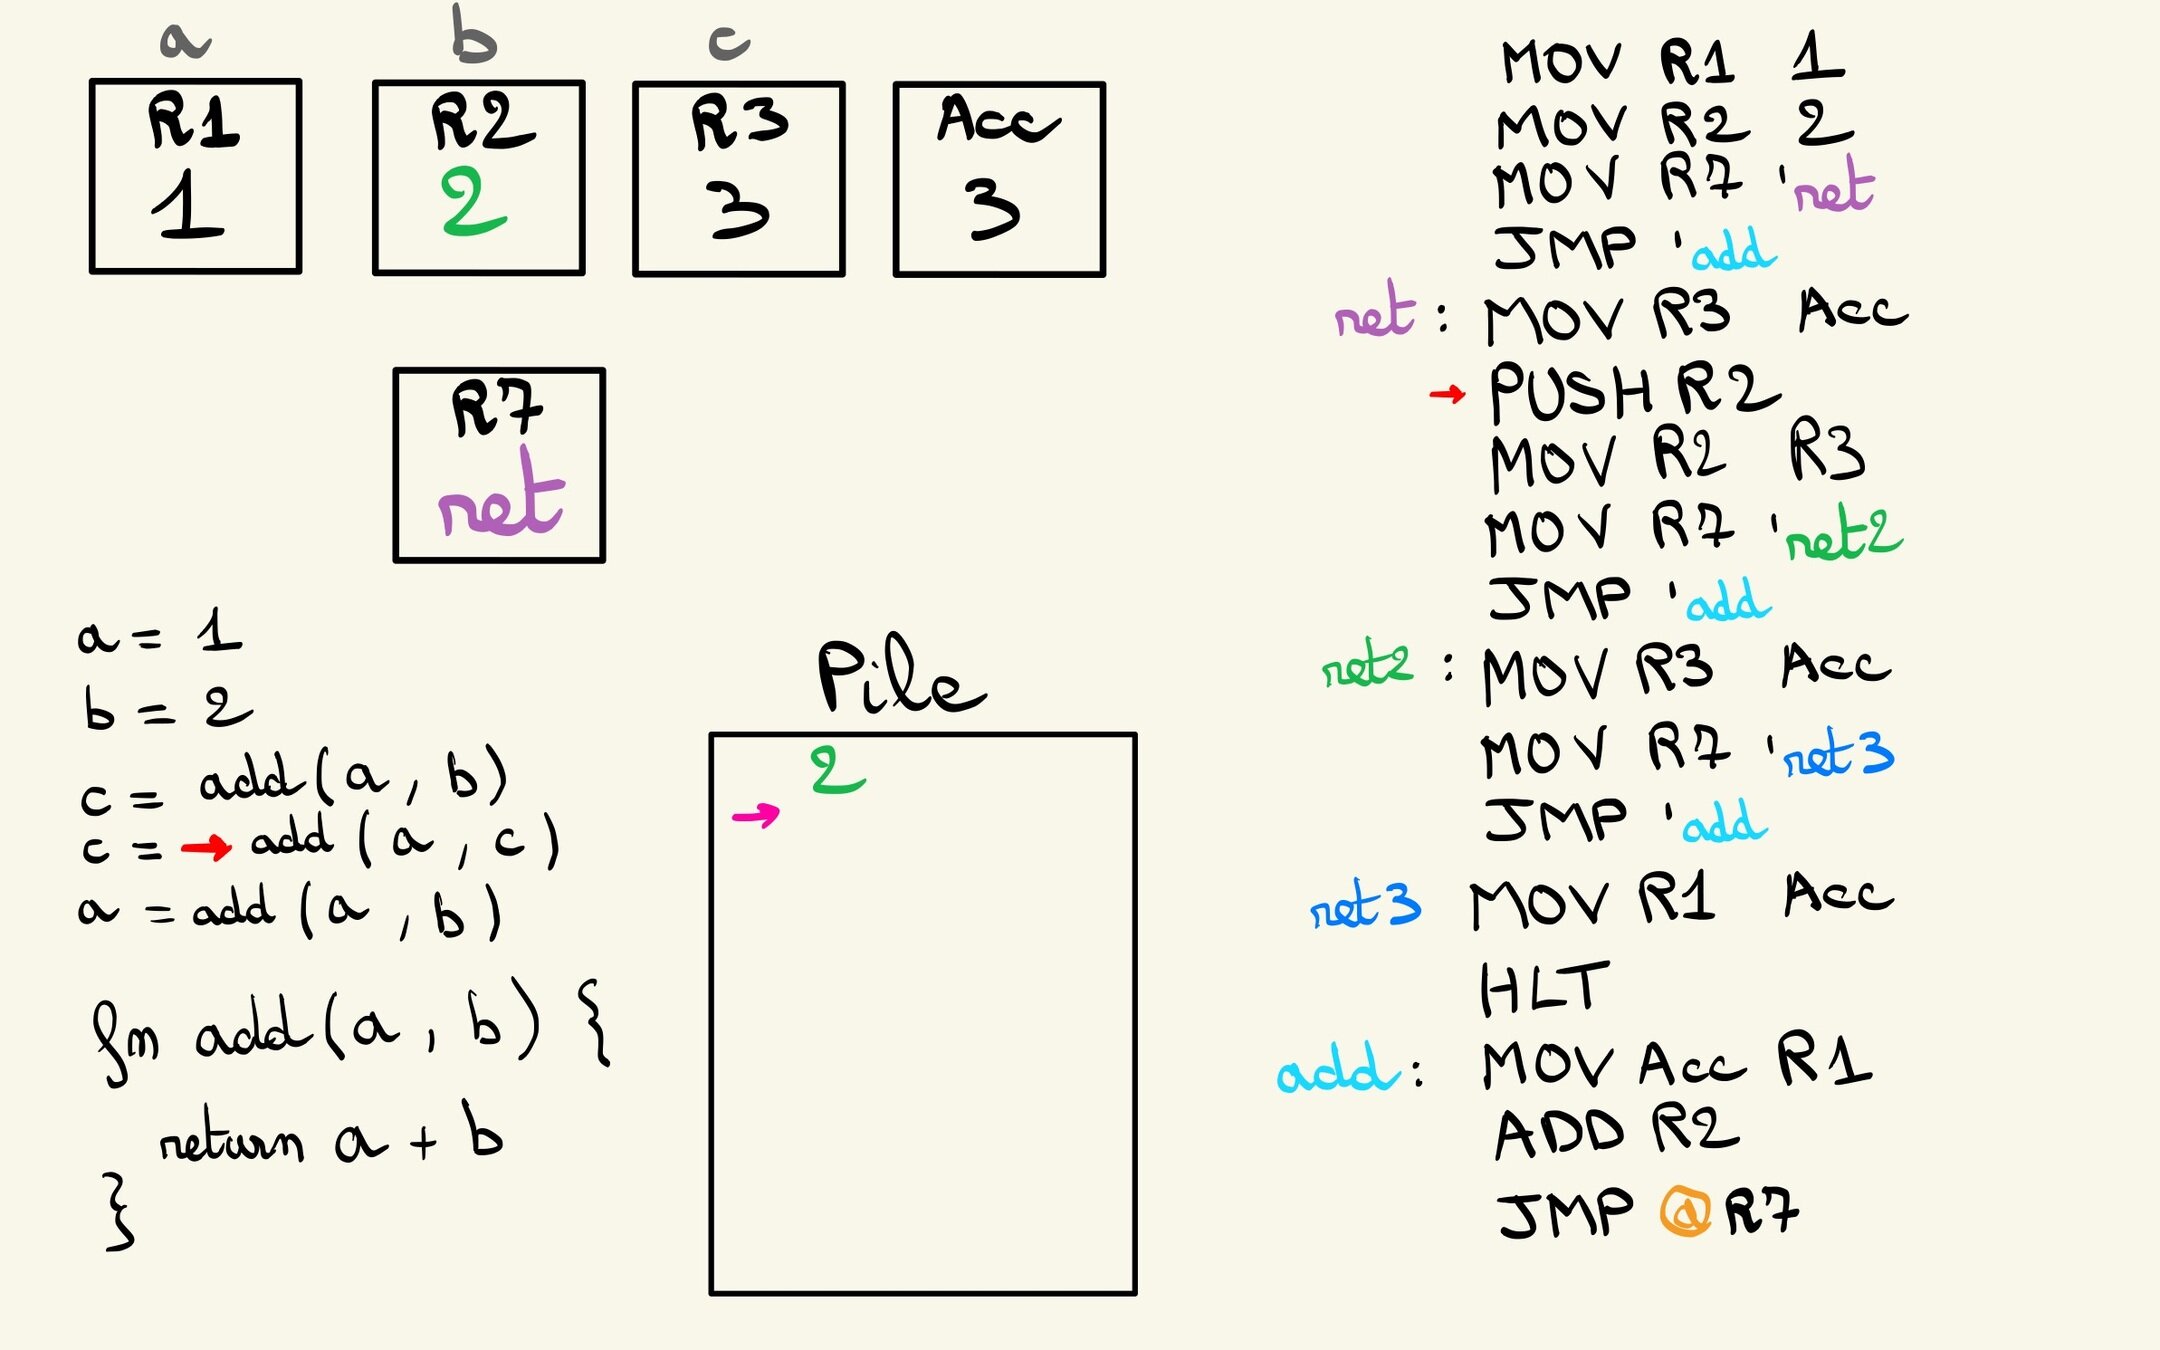 a b c
R1 R2 R3 Acc
1 2 3 3
R7
ret
a = 1
b = 2
c = add(a, b)
c = → add(a, c)
a = add(a, b)
fn add(a, b) {
return a + b
}
Pile
2
→
MOV R1 1
MOV R2 2
MOV R7 'ret
JMP 'add
ret: MOV R3 Acc
→ PUSH R2
MOV R2 R3
MOV R7 'ret2
JMP 'add
ret2: MOV R3 Acc
MOV R7 'ret3
JMP 'add
ret3 MOV R1 Acc
HLT
add: MOV Acc R1
ADD R2
JMP @R7